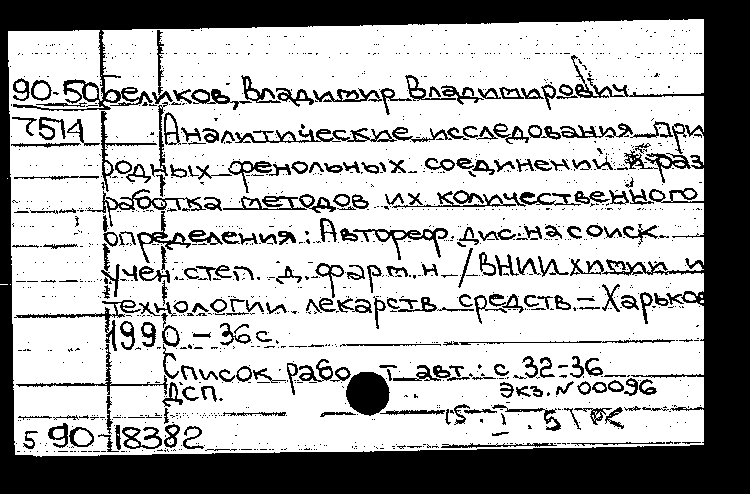 90-50 Беликов, Владимир Владимирович.
7514 Аналитические исследования при
родных фенольных соединений и раз
работка методов их количественного
определения: Автореф. дис. на соиск.
учен. степ. д. фарм. н. / ВНИИ химии и
технологии лекарств. средств. – Харьков
1990. – 36 с.
Список работ авт.: с. 32-36
ДСП. Экз. N 00096
15. I. 51
5 90-18382